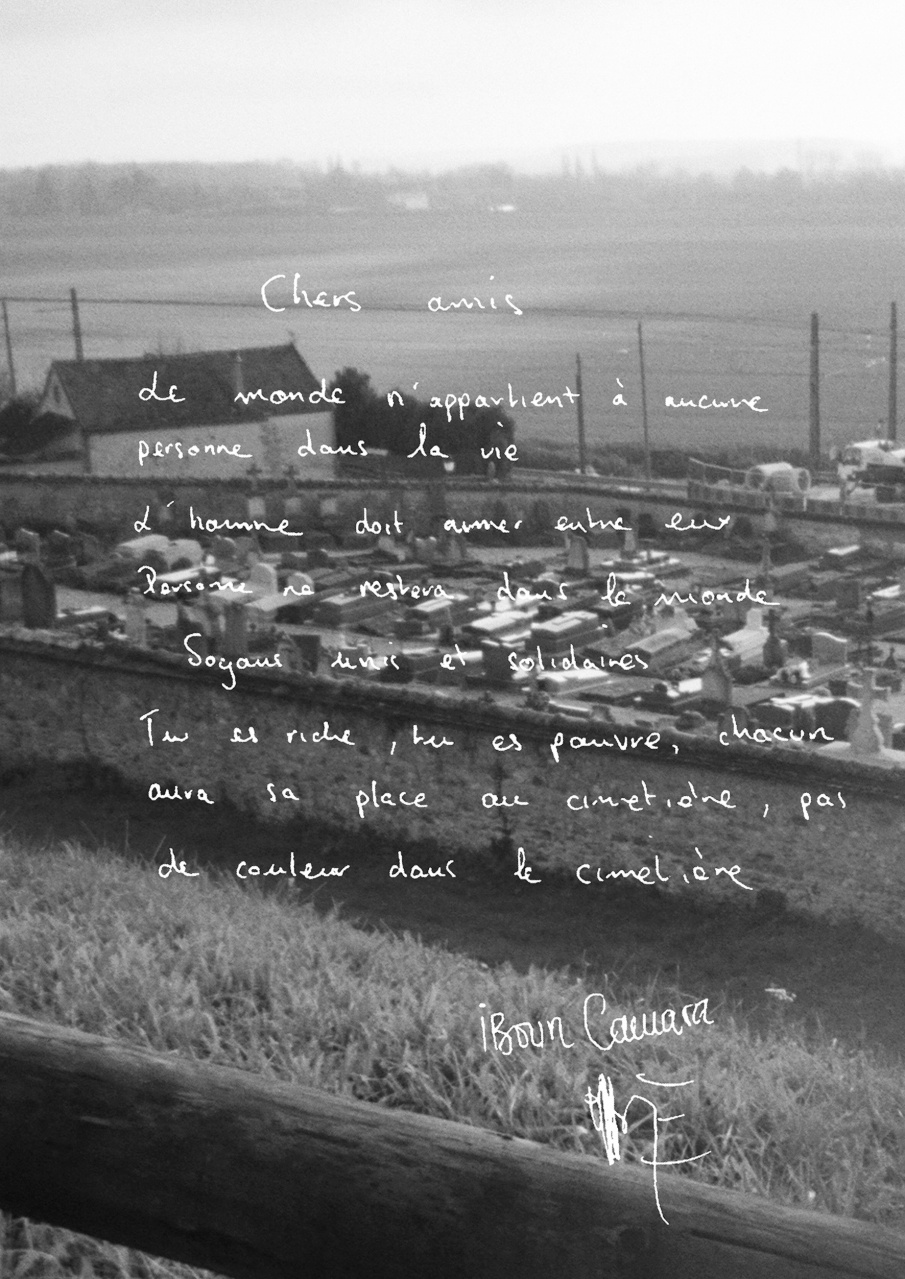 Chers amis
Le monde n'appartient à aucune
personne dans la vie
L'homme doit aimer entre eux
Personne ne restera dans le monde
Soyons unis et solidaires
Tu es riche, tu es pauvre, chacun
aura sa place au cimetière, pas
de couleur dans le cimetière
iBoun Camara